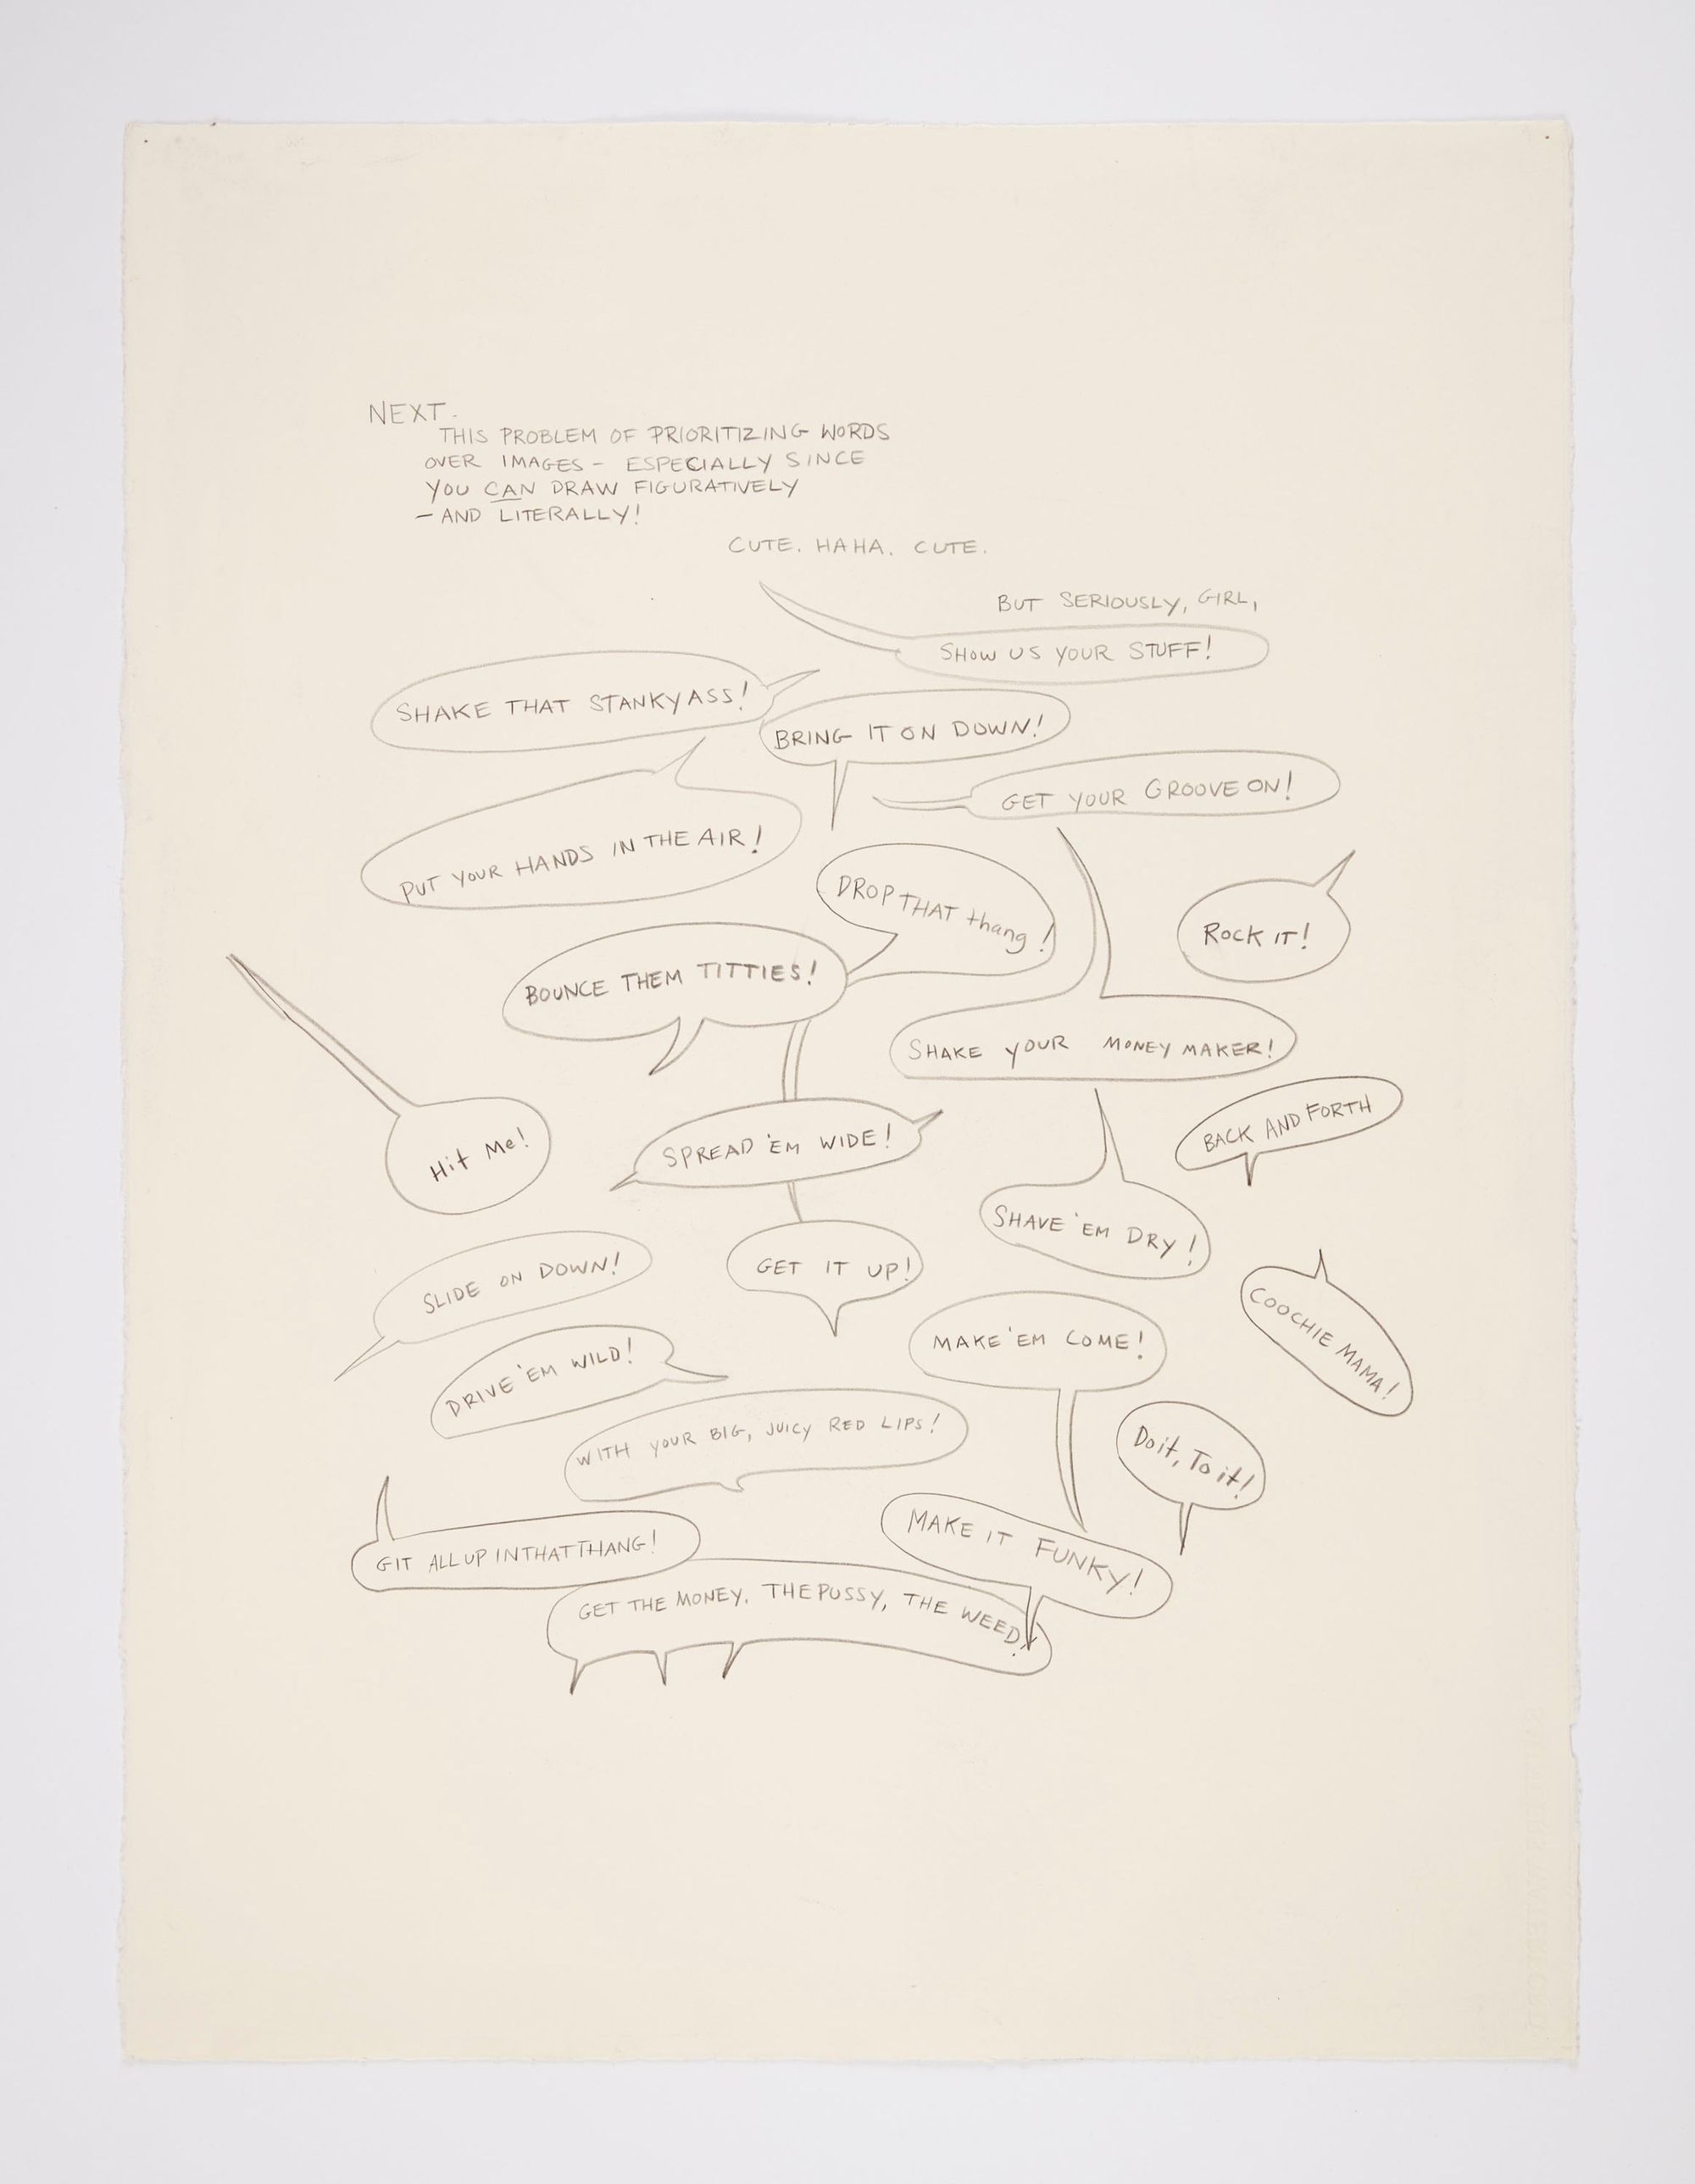 NEXT.
THIS PROBLEM OF PRIORITIZING WORDS
OVER IMAGES - ESPECIALLY SINCE
YOU CAN DRAW FIGURATIVELY
- AND LITERALLY!
CUTE. HAHA. CUTE.
BUT SERIOUSLY, GIRL,
SHOW US YOUR STUFF!
SHAKE THAT STANKY ASS!
BRING IT ON DOWN!
GET YOUR GROOVE ON!
PUT YOUR HANDS IN THE AIR!
DROP THAT thang!
ROCK IT!
BOUNCE THEM TITTIES!
SHAKE YOUR MONEY MAKER!
BACK AND FORTH
Hit Me!
SPREAD 'EM WIDE!
SHAVE 'EM DRY!
SLIDE ON DOWN!
GET IT UP!
COOCHIE MAMA!
MAKE 'EM COME!
DRIVE 'EM WILD!
WITH YOUR BIG, JUICY RED LIPS!
Do it, To it!
MAKE IT FUNKY!
GIT ALL UP IN THAT THANG!
GET THE MONEY. THE PUSSY, THE WEED!